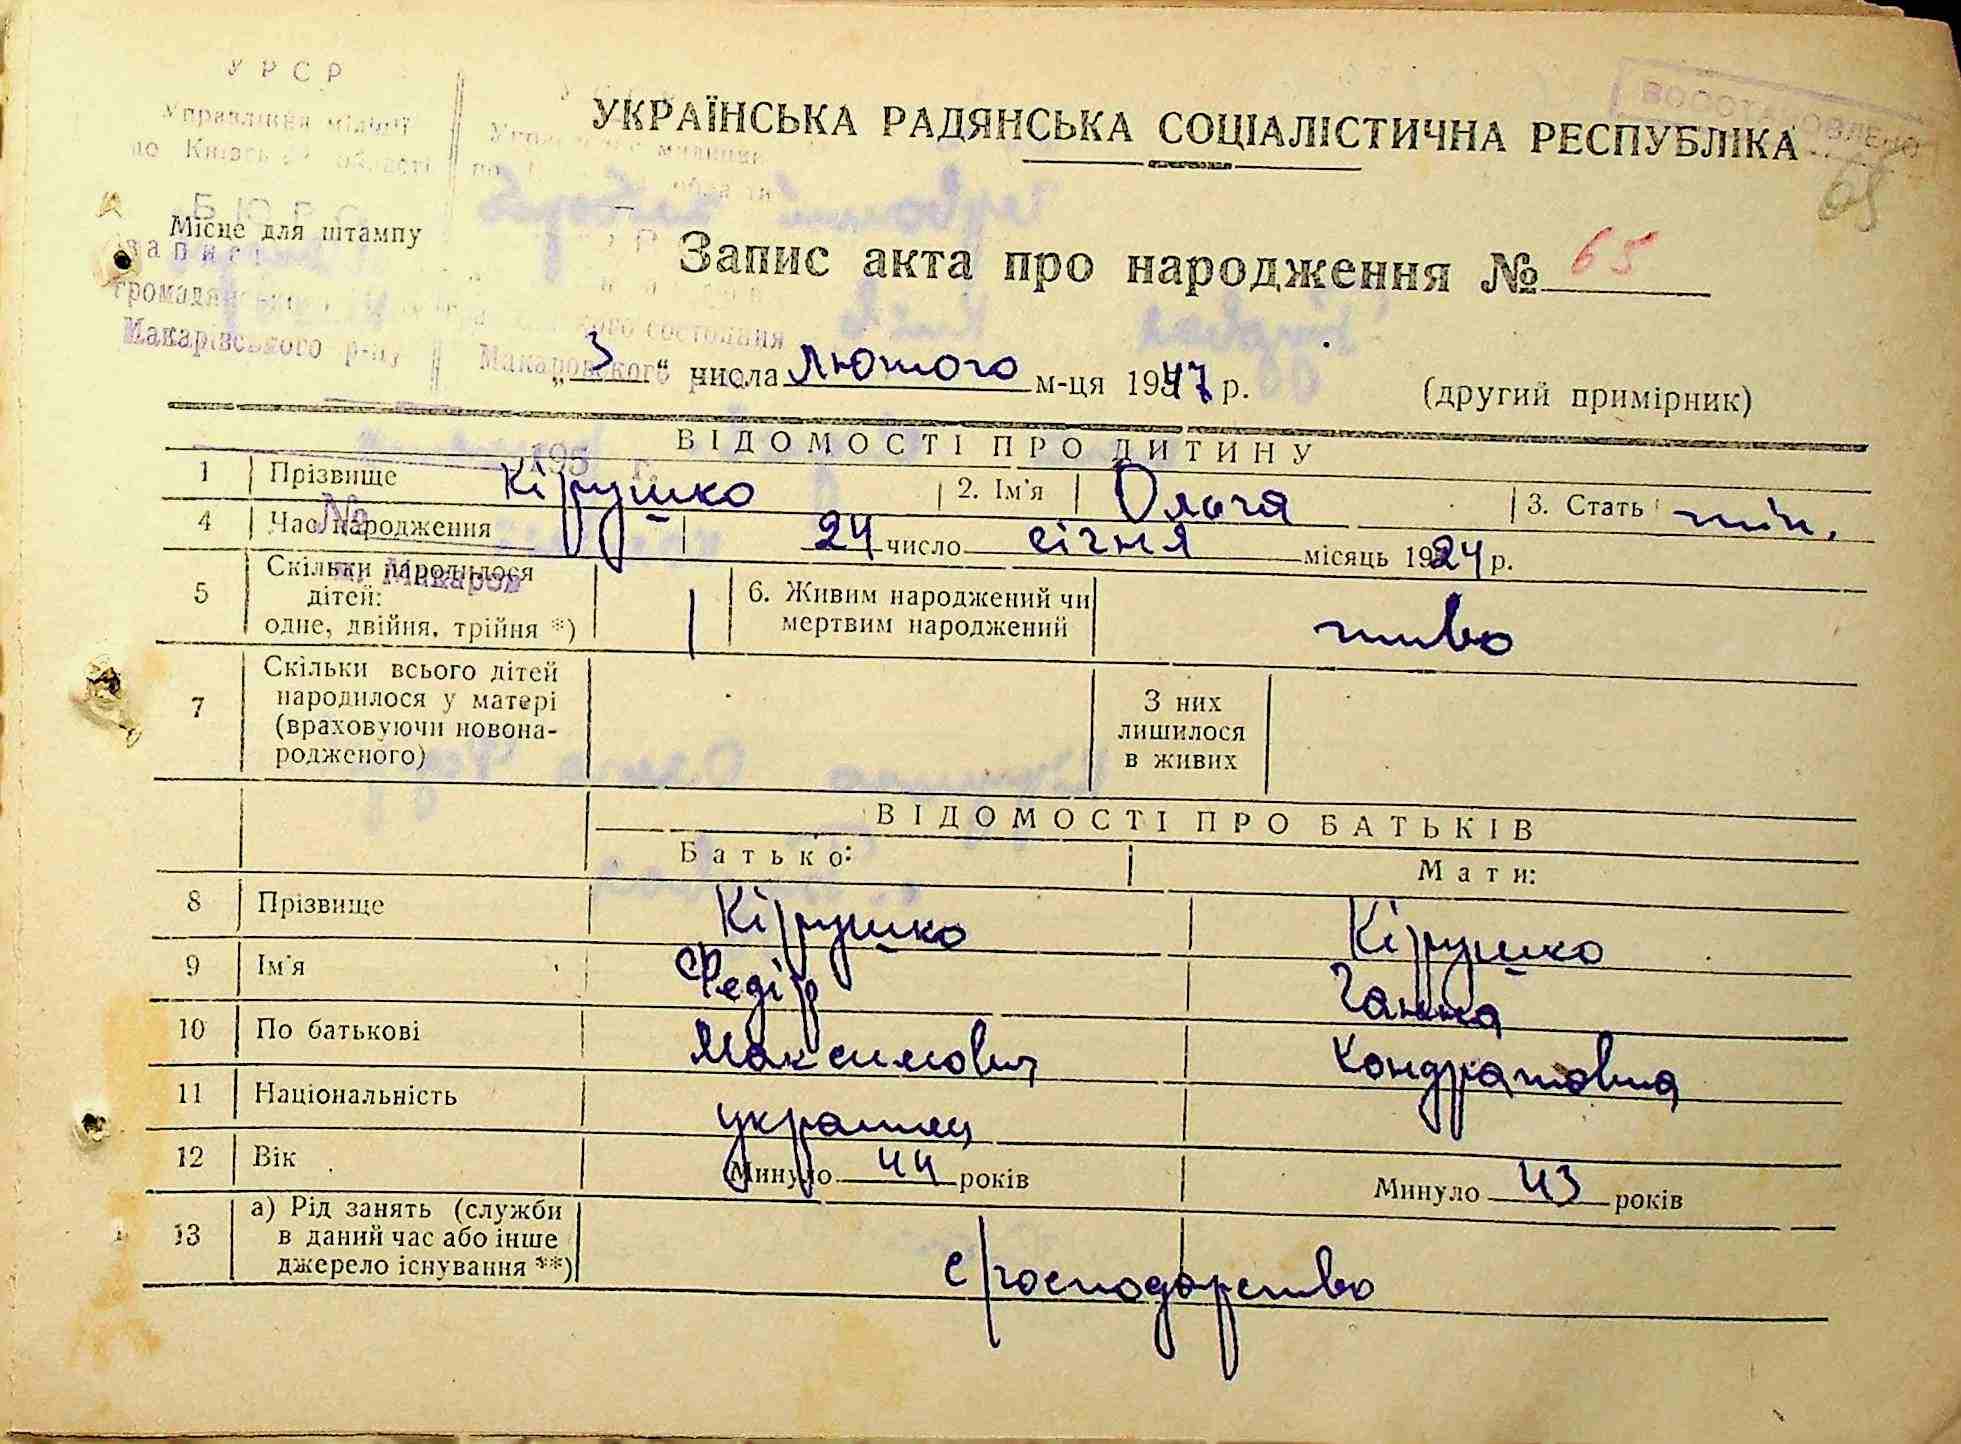 УРСР
Управління міліції
по Київській області
БЮРО
Місце для штампу
запису
Макарівського р-ну
Макаровского
№
м. Макаров
УКРАЇНСЬКА РАДЯНСЬКА СОЦІАЛІСТИЧНА РЕСПУБЛІКА
65
Запис акта про народження № 65
„3“ числа лютого м-ця 1947 р. (другий примірник)
ВІДОМОСТІ ПРО ДИТИНУ
1 Прізвище Кірушко 2. Ім'я Ольга 3. Стать жін.
4 Час народження 24 число січня місяць 1924 р.
5 Скільки народилося
дітей:
одне, двійня, трійня *) 1
6. Живим народжений чи
мертвим народжений живо
7 Скільки всього дітей
народилося у матері
(враховуючи новона-
родженого)
З них
лишилося
в живих
ВІДОМОСТІ ПРО БАТЬКІВ
Батько: Мати:
8 Прізвище Кірушко Кірушко
9 Ім'я Федір Ганна
10 По батькові Максимович Кондратовна
11 Національність українец
12 Вік Минуло 44 років Минуло 43 років
13 а) Рід занять (служби
в даний час або інше
джерело існування **) с/господарство